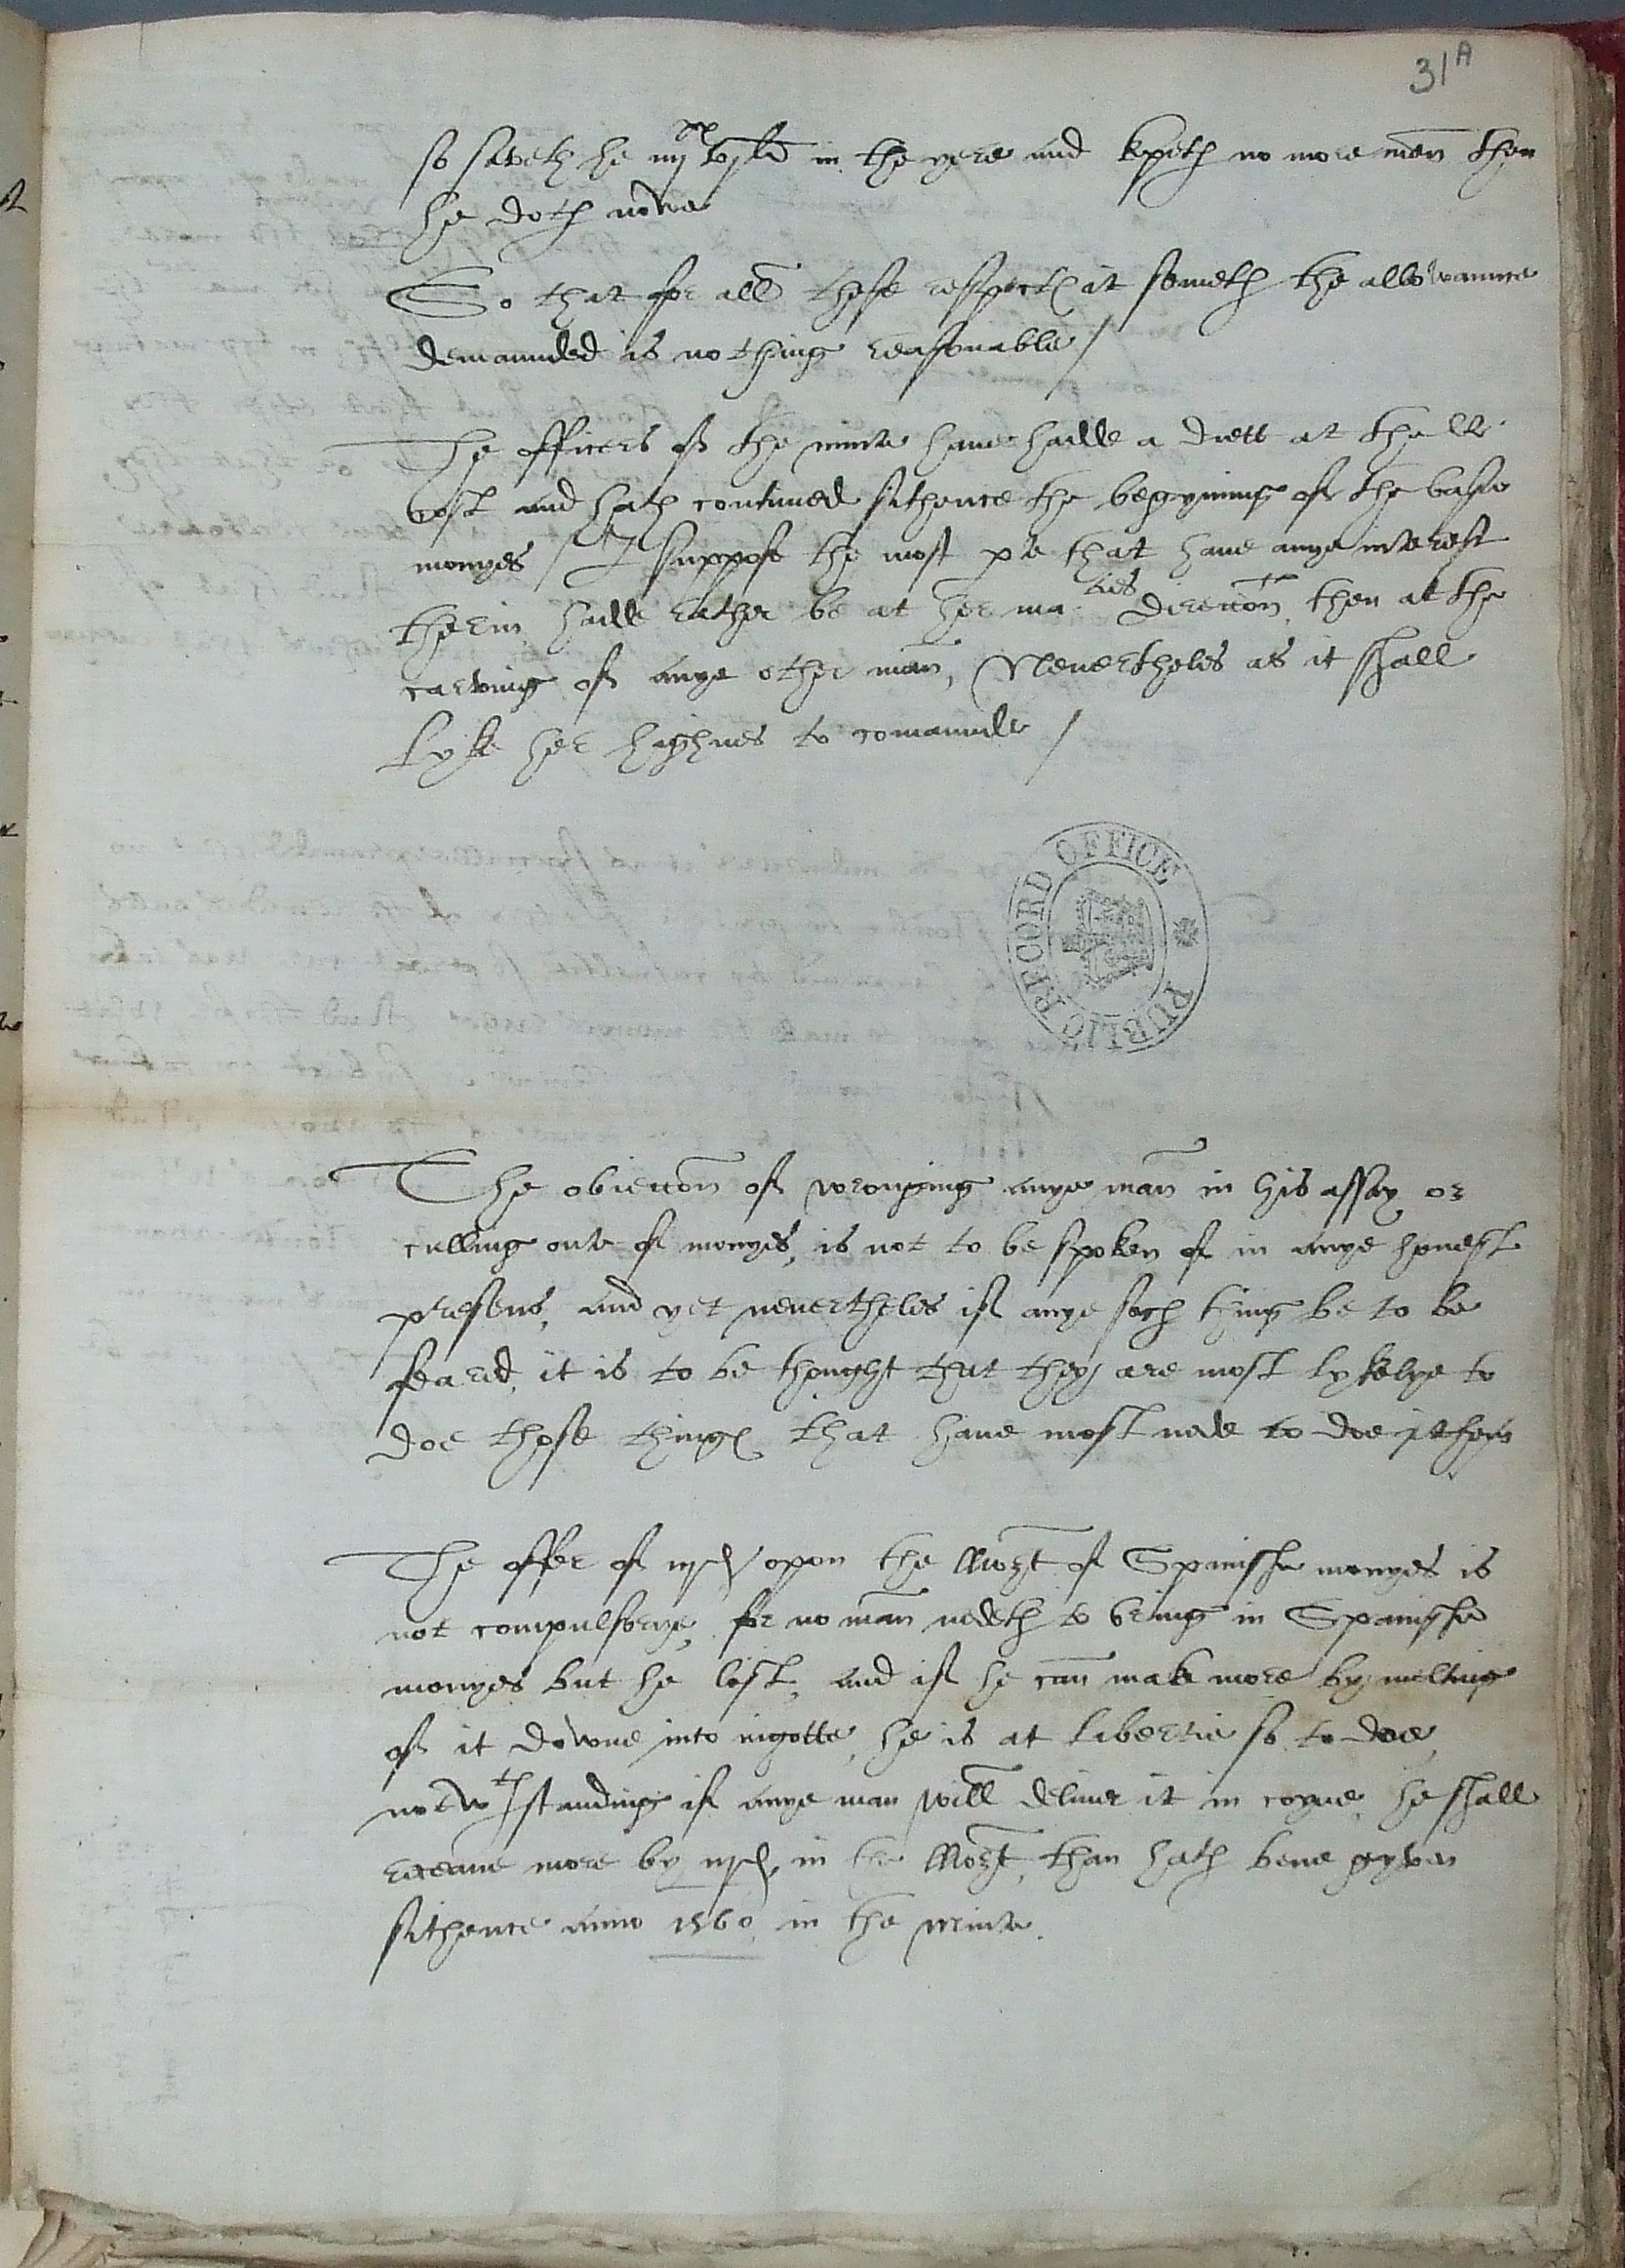 31A
so saveth he iiij xx vj li in the yere and kepith no more men then
he doth nowe
So that for all these respectes it semeth the allowaunce
demaunded is nothing reasonable /
The officers of the minte have hadde a diett at the
cost and hath contined sithence the begynning of the base
monyes / I suppose the most pte that have anye interest
therin hadde rather be at her maties direccon then at the
carving of anye other man, Nevertheles as it shall
lyke her highnes to comaunde /
PUBLIC RECORD OFFICE
The obieccon of wronging anye man in his assay or
culling oute of monyes, is not to be spoken of in anye honest
presens, and yet nevertheles if anye soch thing be to be
feared, it is to be thought that they are most lykelye to
doe those thinges that have most nede to doe
The offer of upon the of Spanisshe monyes is
not compulsorye, for no man nedeth to bring in Spanisshe
monyes but he list, and if he can make more by melting
of it downe into ingotte, he is at libertie so to doe,
notwthstanding if anye man will deliver it in coyne, he shall
receave more by in the than hath bene gyven
sithence anno 1560 in the minte.